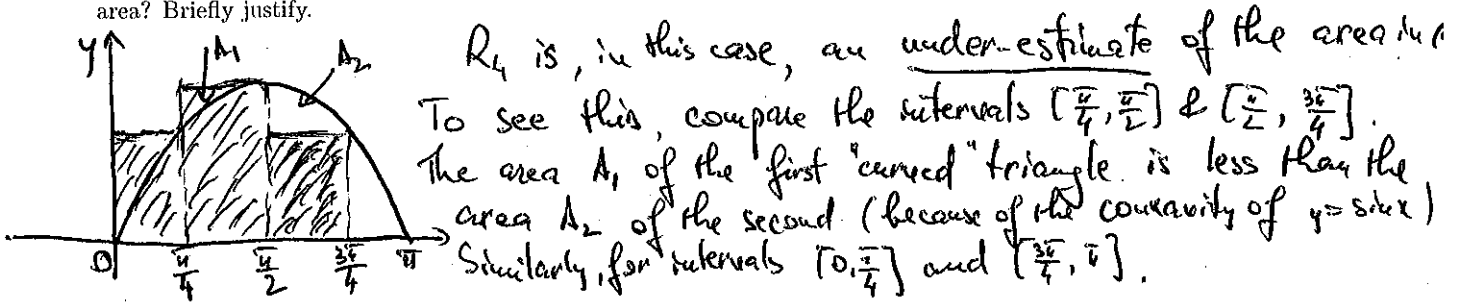 area? Briefly justify.
y A₁ A₂
R₄ is, in this case, an under-estimate of the area
To see this, compare the intervals [π/4, π/2] & [π/2, 3π/4].
The area A₁ of the first "curved" triangle is less than the
area A₂ of the second (because of the concavity of y = sin x)
Similarly, for intervals [0, π/4] and [3π/4, π].
0 π/4 π/2 3π/4 π